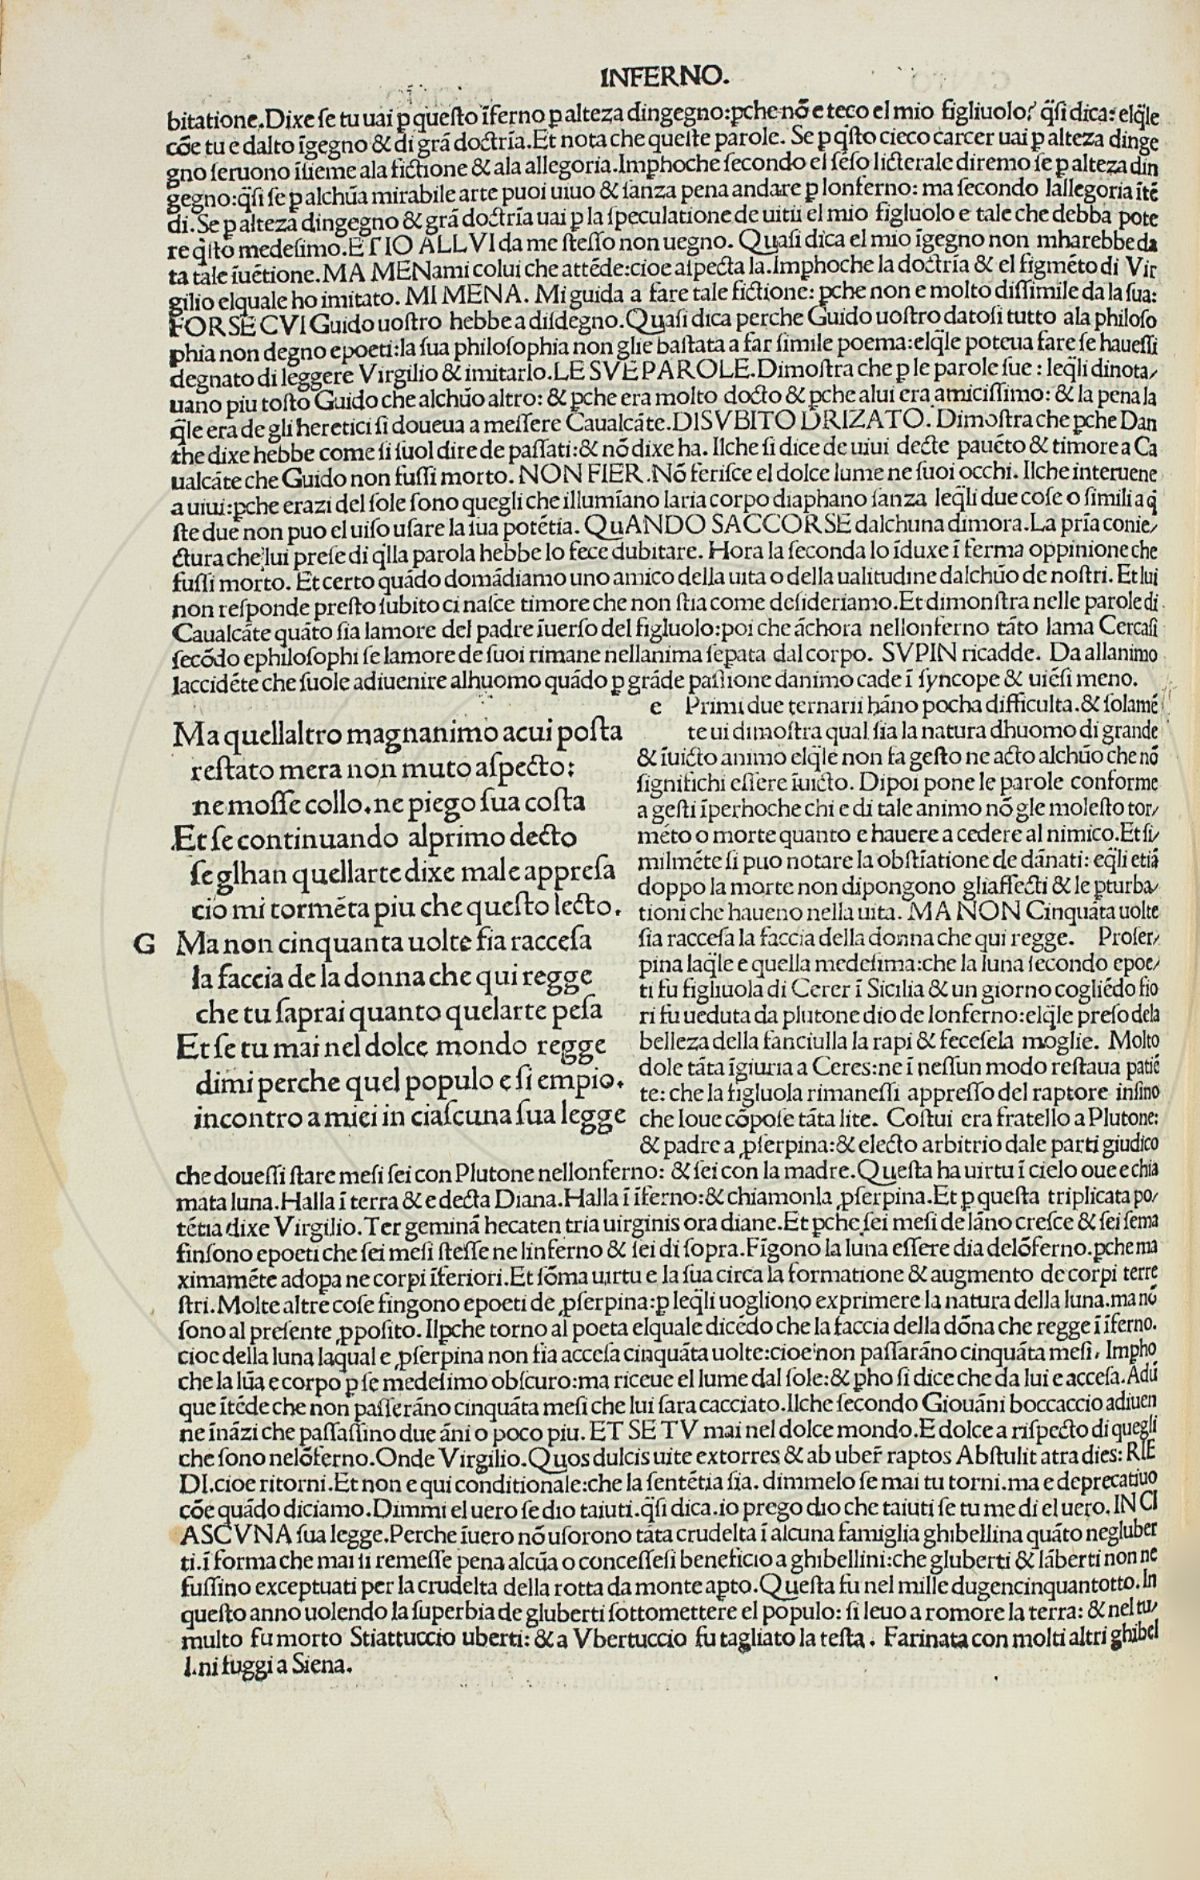 INFERNO.
bitatione.Dixe ſe tu uai ꝑ queſto īferno ꝑ alteza dingegno:ꝑche nō e teco el mio figliuolo? q̄ſi dica: elq̄le
cōe tu e dalto īgegno & di grā doctrīa.Et nota che queſte parole. Se ꝑ q̄ſto cieco carcer uai ꝑ alteza dinge
gno ſeruono īſieme ala fictione & ala allegoria.Imꝑhoche ſecondo el ſēſo licterale diremo ſe ꝑ alteza din
gegno:q̄ſi ſe ꝑ alchūa mirabile arte puoi uiuo & ſanza pena andare ꝑ lonferno: ma ſecondo lallegoria ītē
di.Se ꝑ alteza dingegno & grā doctrīa uai ꝑ la ſpeculatione de uitii el mio figluolo e tale che debba pote
re q̄ſto medeſimo.ET IO ALLVI da me ſteſſo non uegno. Quaſi dica el mio īgegno non mharebbe da
ta tale īuētione.MA MENami colui che attēde:cioe aſpecta la.Imꝑhoche la doctrīa & el figmēto di Vir
gilio elquale ho imitato. MI MENA. Mi guida a fare tale fictione: ꝑche non e molto diſſimile da la ſua:
FORSE CVI Guido uoſtro hebbe a diſdegno.Quaſi dica perche Guido uoſtro datoſi tutto ala philoſo
phia non degno epoeti:la ſua philoſophia non glie baſtata a far ſimile poema:elq̄le poteua fare ſe haueſſi
degnato di leggere Virgilio & imitarlo.LE SVE PAROLE.Dimoſtra che ꝑ le parole ſue : leq̄li dinota/
uano piu toſto Guido che alchūo altro: & ꝑche era molto docto & ꝑche alui era amiciſſimo: & la pena la
q̄le era de gli heretici ſi doueua a meſſere Caualcāte.DISVBITO DRIZATO. Dimoſtra che ꝑche Dan
the dixe hebbe come ſi ſuol dire de paſſati:& nō dixe ha. Ilche ſi dice de uiui decte pauēto & timore a Ca
ualcāte che Guido non fuſſi morto. NON FIER.Nō feriſce el dolce lume ne ſuoi occhi. Ilche interuene
a uiui:ꝑche erazi del ſole ſono quegli che illumīano laria corpo diaphano ſanza leq̄li due coſe o ſimili a q̄
ſte due non puo el uiſo uſare la ſua potētia. QuANDO SACCORSE dalchuna dimora. La prīa conie/
ctura che lui preſe di q̄lla parola hebbe lo fece dubitare. Hora la ſeconda lo īduxe ī ferma oppinione che
fuſſi morto. Et certo quādo domādiamo uno amico della uita o della ualitudine dalchūo de noſtri. Et lui
non reſponde preſto ſubito ci naſce timore che non ſtia come deſideriamo.Et dimonſtra nelle parole di
Caualcāte quāto ſia lamore del padre īuerſo del figluolo:poi che āchora nellonferno tāto lama Cercaſi
ſecōdo ephiloſophi ſe lamore de ſuoi rimane nellanima ſepata dal corpo. SVPIN ricadde. Da allanimo
laccidēte che ſuole adiuenire alhuomo quādo ꝑ grāde paſſione danimo cade ī ſyncope & uiēſi meno.
Ma quellaltro magnanimo acui poſta
reſtato mera non muto aſpecto:
ne moſſe collo.ne piego ſua coſta
Et ſe continuando alprimo decto
ſe glhan quellarte dixe male appreſa
cio mi tormēta piu che queſto lecto.
G Ma non cinquanta uolte fia racceſa
la faccia de la donna che qui regge
che tu ſaprai quanto quelarte peſa
Et ſe tu mai nel dolce mondo regge
dimi perche quel populo e ſi empio.
incontro a miei in ciaſcuna ſua legge
e Primi due ternarii hāno pocha difficulta.& ſolamē
te ui dimoſtra qual ſia la natura dhuomo di grande
& īuicto animo elq̄le non fa geſto ne acto alchūo che nō
ſignifichi eſſere īuicto. Dipoi pone le parole conforme
a geſti īperhoche chi e di tale animo nō gle moleſto tor/
mēto o morte quanto e hauere a cedere al nimico.Et ſi/
milmēte ſi puo notare la obſtīatione de dānati: eq̄li etiā
doppo la morte non dipongono gliaffecti & le ꝑturba/
tioni che haueno nella uita. MA NON Cinquāta uolte
ſia racceſa la faccia della donna che qui regge. Proſer/
pina laq̄le e quella medeſima:che la luna ſecondo epoe/
ti fu figliuola di Cerer ī Sicilia & un giorno cogliēdo fio
ri fu ueduta da plutone dio de lonferno:elq̄le preſo dela
belleza della fanciulla la rapi & feceſela moglie. Molto
dole tāta īgiuria a Ceres:ne ī neſſun modo reſtaua patiē
te: che la figluola rimaneſſi appreſſo del raptore inſino
che Ioue cōpoſe tāta lite. Coſtui era fratello a Plutone:
& padre a ꝓſerpina:& electo arbitrio dale parti giudico
che doueſſi ſtare meſi ſei con Plutone nellonferno: & ſei con la madre.Queſta ha uirtu ī cielo oue e chia
mata luna.Halla ī terra & e decta Diana.Halla ī īferno:& chiamonla ꝓſerpina.Et ꝑ queſta triplicata po/
tētia dixe Virgilio.Ter geminā hecaten tria uirginis ora diane.Et ꝑche ſei meſi de lāno creſce & ſei ſema
finſono epoeti che ſei meſi ſteſſe ne linferno & ſei di ſopra.Fīgono la luna eſſere dia delōferno.ꝑche ma
ximamēte adopa ne corpi īferiori.Et ſōma uirtu e la ſua circa la formatione & augmento de corpi terre
ſtri.Molte altre coſe fingono epoeti de ꝓſerpina:ꝑ leq̄li uogliono exprimere la natura della luna.ma nō
ſono al preſente ꝓpoſito. Ilꝑche torno al poeta elquale dicēdo che la faccia della dōna che regge ī īferno.
cioe della luna laqual e ꝓſerpina non fia acceſa cinquāta uolte:cioe non paſſarāno cinquāta meſi. Impho
che la lūa e corpo ꝑ ſe medeſimo obſcuro:ma riceue el lume dal ſole:& ꝑho ſi dice che da lui e acceſa.Adū
que ītēde che non paſſerāno cinquāta meſi che lui ſara cacciato.Ilche ſecondo Giouāni boccaccio adiuen
ne īnāzi che paſſaſſino due āni o poco piu. ET SE TV mai nel dolce mondo.E dolce a riſpecto di quegli
che ſono nelōferno.Onde Virgilio.Quos dulcis uite extorres & ab uber̄ raptos Abſtulit atra dies: RIE
DI.cioe ritorni.Et non e qui conditionale:che la ſentētia ſia. dimmelo ſe mai tu torni.ma e deprecatiuo
cōe quādo diciamo.Dimmi el uero ſe dio taiuti.q̄ſi dica.io prego dio che taiuti ſe tu me di el uero.IN CI
ASCVNA ſua legge.Perche īuero nō uſorono tāta crudelta ī alcuna famiglia ghibellina quāto negluber
ti.ī forma che mai ſi remeſſe pena alcūa o conceſſeſi beneficio a ghibellini:che gluberti & lāberti non ne
fuſſino exceptuati per la crudelta della rotta da monte apto.Queſta fu nel mille dugencinquantotto.In
queſto anno uolendo la ſuperbia de gluberti ſottomettere el populo: ſi leuo a romore la terra: & nel tu/
multo fu morto Stiattuccio uberti: & a Vbertuccio fu tagliato la teſta. Farinata con molti altri ghibel
lini fuggi a Siena.